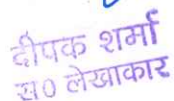 दीपक शर्मा
स0 लेखाकार